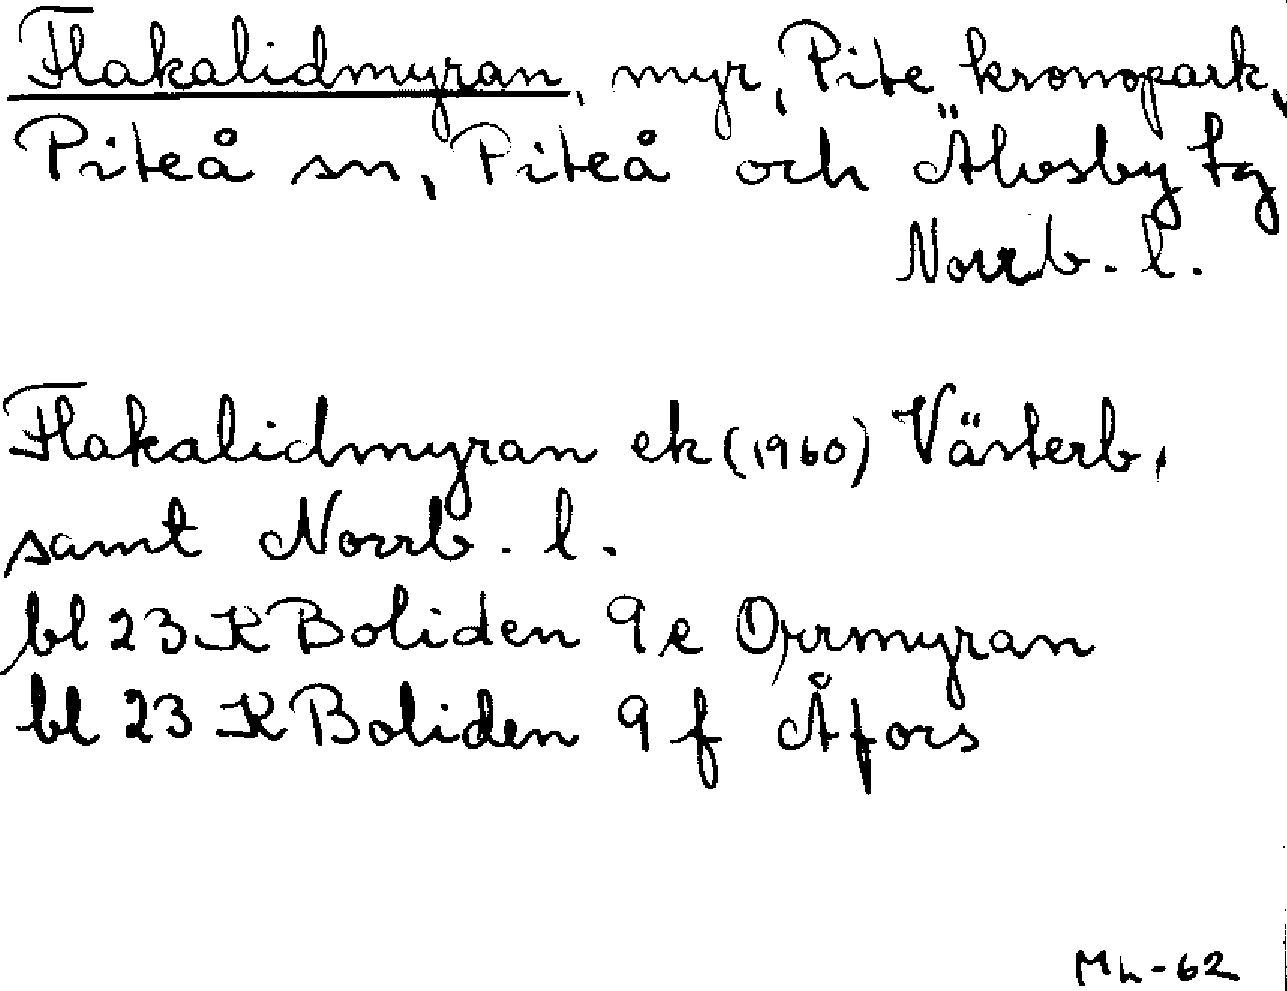 Flakalidmyran, myr, Pite kronopark,
Piteå sn, Piteå och Älvsby tg
Norrb. l.
Flakalidmyran ek (1960) Västerb.
samt Norrb. l.
bl 23 K Boliden 9 e Orrmyran
bl 23 K Boliden 9 f Åfors
Mh-62